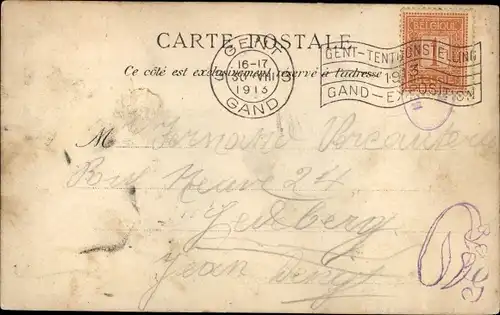 CARTE POSTALE
Ce côté est exclusivement réservé à l'adresse
GENT
16-17
1913
GAND
GENT-TENTOONSTELLING
1913
GAND-EXPOSITION
BELGIQUE
1
M. Fernand
Rue Neuve 24
Ledeberg
Jean